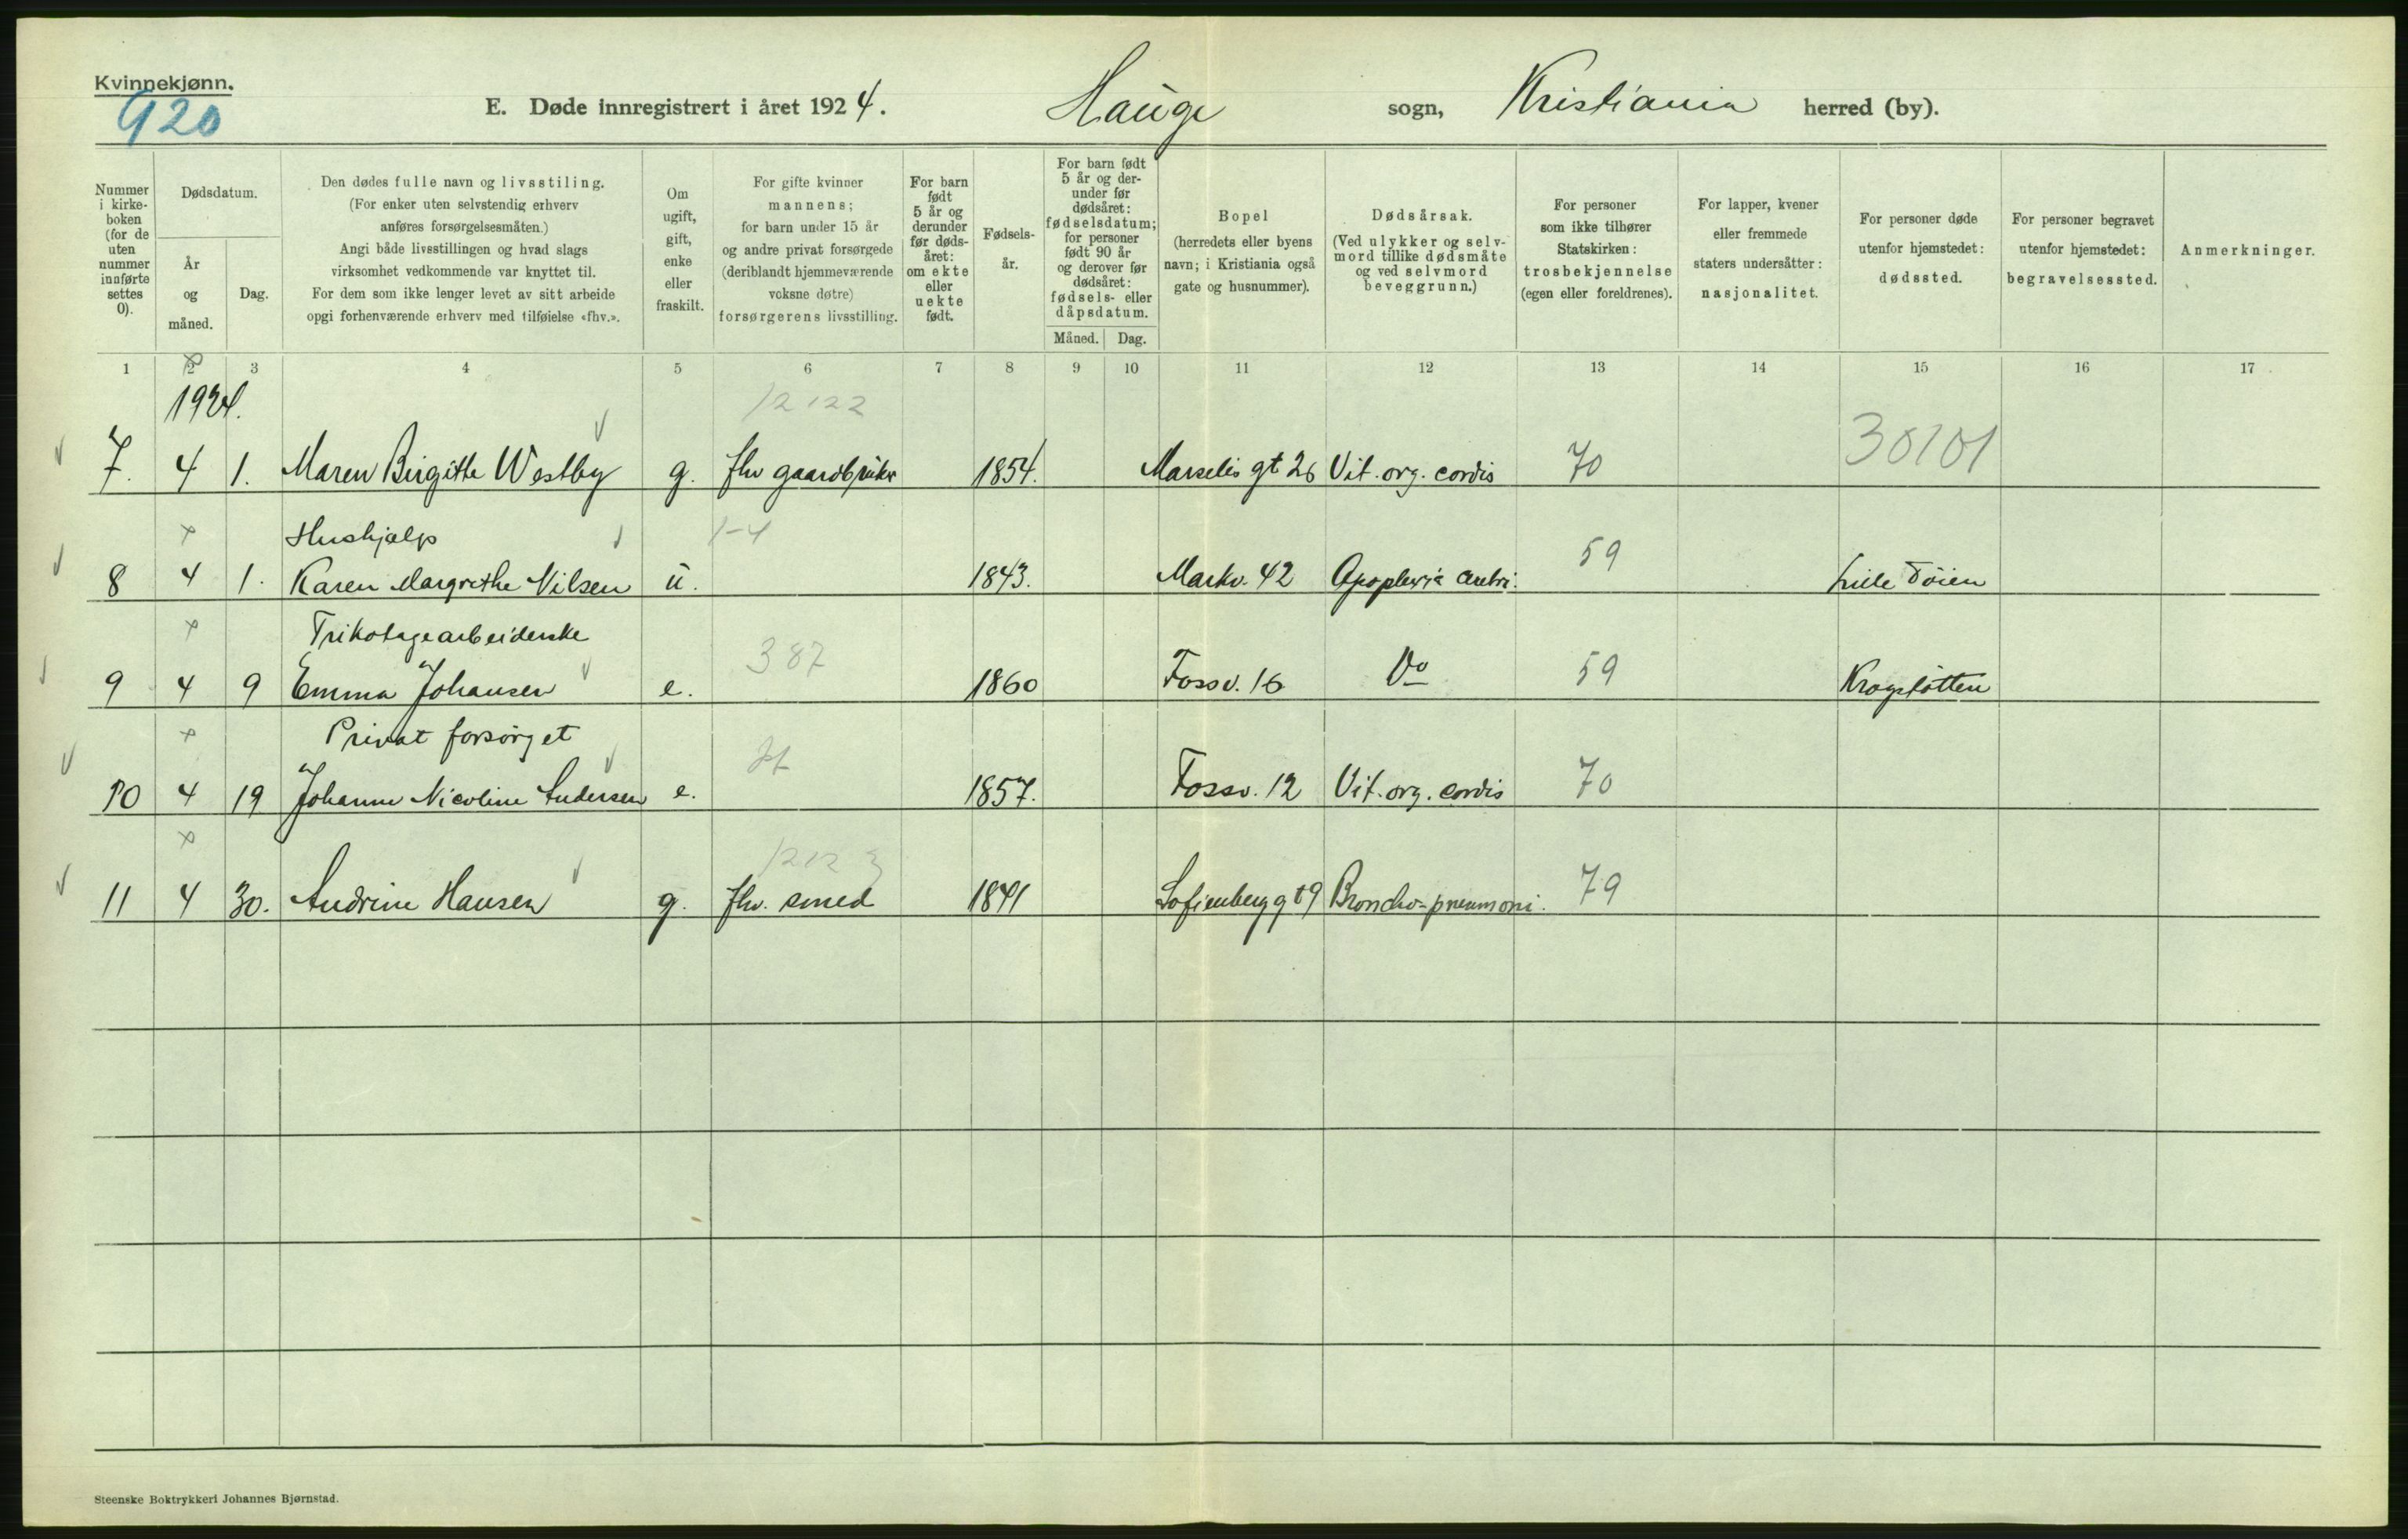 Kvinnekjønn.
920
E. Døde innregistrert i året 1924. Hauge sogn, Kristiania herred (by).
Nummer i kirke-boken (for de uten nummer innførte settes 0).
Dødsdatum.
År og måned.
Dag.
Den dødes fulle navn og livsstiling.
(For enker uten selvstendig erhverv
anføres forsørgelsesmåten.)
Angi både livsstillingen og hvad slags
virksomhet vedkommende var knyttet til.
For dem som ikke lenger levet av sitt arbeide
opgi forhenværende erhverv med tilføielse «fhv.».
Om
ugift,
gift,
enke
eller
fraskilt.
For gifte kvinner
mannens;
for barn under 15 år
og andre privat forsørgede
(deriblandt hjemmeværende
voksne døtre)
forsørgerens livsstilling.
For barn
født
5 år og
derunder
før døds-
året:
om ekte
eller
uekte
født.
Fødsels-
år.
For barn født
5 år og der-
under før
dødsåret:
fødselsdatum;
for personer
født 90 år
og derover før
dødsåret:
fødsels- eller
dåpsdatum.
Måned. Dag.
Bopel
(herredets eller byens
navn; i Kristiania også
gate og husnummer).
Dødsårsak.
(Ved ulykker og selv-
mord tillike dødsmåte
og ved selvmord
beveggrunn.)
For personer
som ikke tilhører
Statskirken:
trosbekjennelse
(egen eller foreldrenes).
For lapper, kvener
eller fremmede
staters undersåtter:
nasjonalitet.
For personer døde
utenfor hjemstedet:
dødssted.
For personer begravet
utenfor hjemstedet:
begravelsessted.
Anmerkninger.
1 2 3 4 5 6 7 8 9 10 11 12 13 14 15 16 17
1924. 12122
7. 4 1. Maren Birgitte Westby g. fhv gaardbruker 1854. Marselis gt 26 Vit. org. cordis 70 30101
Hushjælp 1-4
8 4 1. Karen Margrethe Nilsen u. 1843. Markv. 42 Apoplexia cerebri. 59 Lille Tøien
Trikotagearbeiderske 387
9 4 9 Emma Johansen e. 1860 Fossv. 16 Do 59 Krogstøtten
Privat forsørget
10 4 19 Johanne Nicoline Andersen e. 1857. Fossv. 12 Vit. org. cordis 70
1212 3
11 4 30. Andrine Hansen g. fhv. smed 1841 Sofienberg gt 9 Broncho-pneumoni. 79
Steenske Boktrykkeri Johannes Bjørnstad.